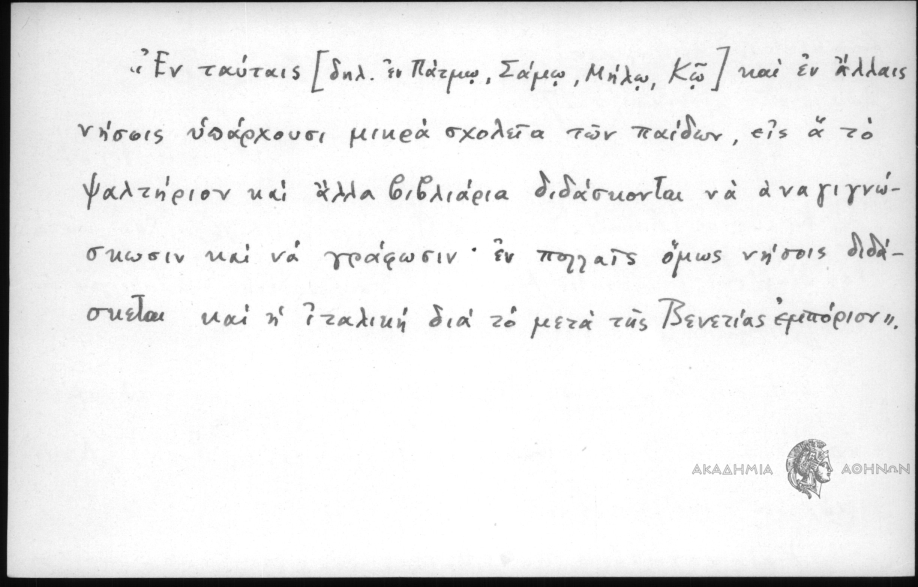 «Ἐν ταύταις [δηλ. ἐν Πάτμῳ, Σάμῳ, Μήλῳ, Κῷ] καὶ ἐν ἄλλαις
νήσοις ὑπάρχουσι μικρὰ σχολεῖα τῶν παίδων, εἰς ἃ τὸ
ψαλτήριον καὶ ἄλλα βιβλιάρια διδάσκονται νὰ ἀναγιγνώ-
σκωσιν καὶ νὰ γράφωσιν · ἐν πολλαῖς ὅμως νήσοις διδά-
σκεται καὶ ἡ ἰταλικὴ διὰ τὸ μετὰ τῆς Βενετίας ἐμπόριον».
ΑΚΑΔΗΜΙΑ ΑΘΗΝΩΝ